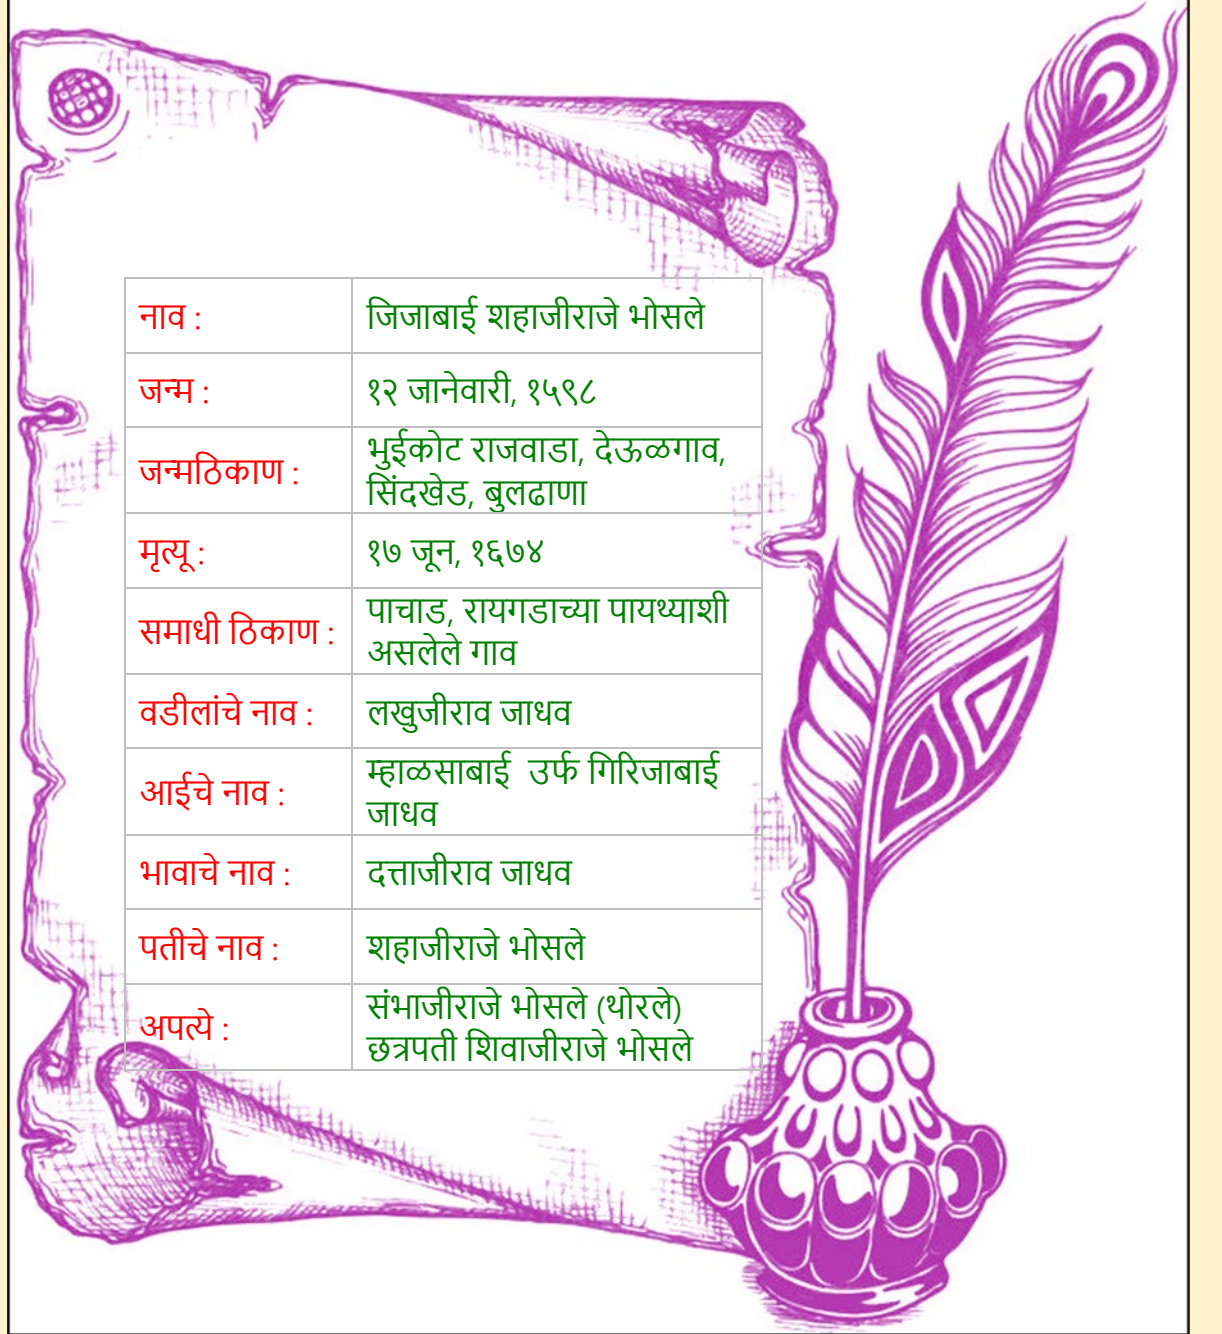 नाव :
जिजाबाई शहाजीराजे भोसले
जन्म :
१२ जानेवारी, १५९८
जन्मठिकाण :
भुईकोट राजवाडा, देऊळगाव,
सिंदखेड, बुलढाणा
मृत्यू :
१७ जून, १६७४
समाधी ठिकाण :
पाचाड, रायगडाच्या पायथ्याशी
असलेले गाव
वडीलांचे नाव :
लखुजीराव जाधव
आईचे नाव :
म्हाळसाबाई  उर्फ गिरिजाबाई
जाधव
भावाचे नाव :
दत्ताजीराव जाधव
पतीचे नाव :
शहाजीराजे भोसले
अपत्ये :
संभाजीराजे भोसले (थोरले)
छत्रपती शिवाजीराजे भोसले